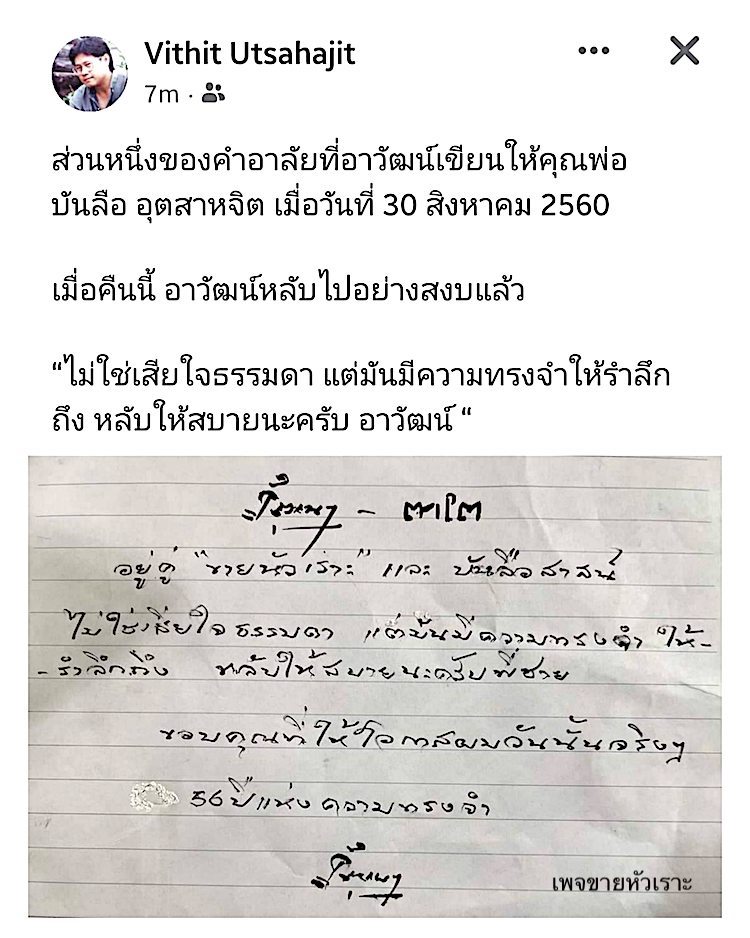 Vithit Utsahajit
7m
ส่วนหนึ่งของคำอาลัยที่อาวัฒน์เขียนให้คุณพ่อ
บันลือ อุตสาหจิต เมื่อวันที่ 30 สิงหาคม 2560
เมื่อคืนนี้ อาวัฒน์หลับไปอย่างสงบแล้ว
“ไม่ใช่เสียใจธรรมดา แต่มันมีความทรงจำให้รำลึก
ถึง หลับให้สบายนะครับ อาวัฒน์ “
- ตาโต
อยู่คู่ "ขายหัวเราะ" และ บันลือสาสน์
ไม่ใช่เสียใจธรรมดา แต่มันมีความทรงจำ ให้-
-รำลึกถึง หลับให้สบายนะครับพี่ชาย
ขอบคุณที่ให้โอกาสผมวันนั้นจริงๆ
56 ปีแห่งความทรงจำ
เพจขายหัวเราะ